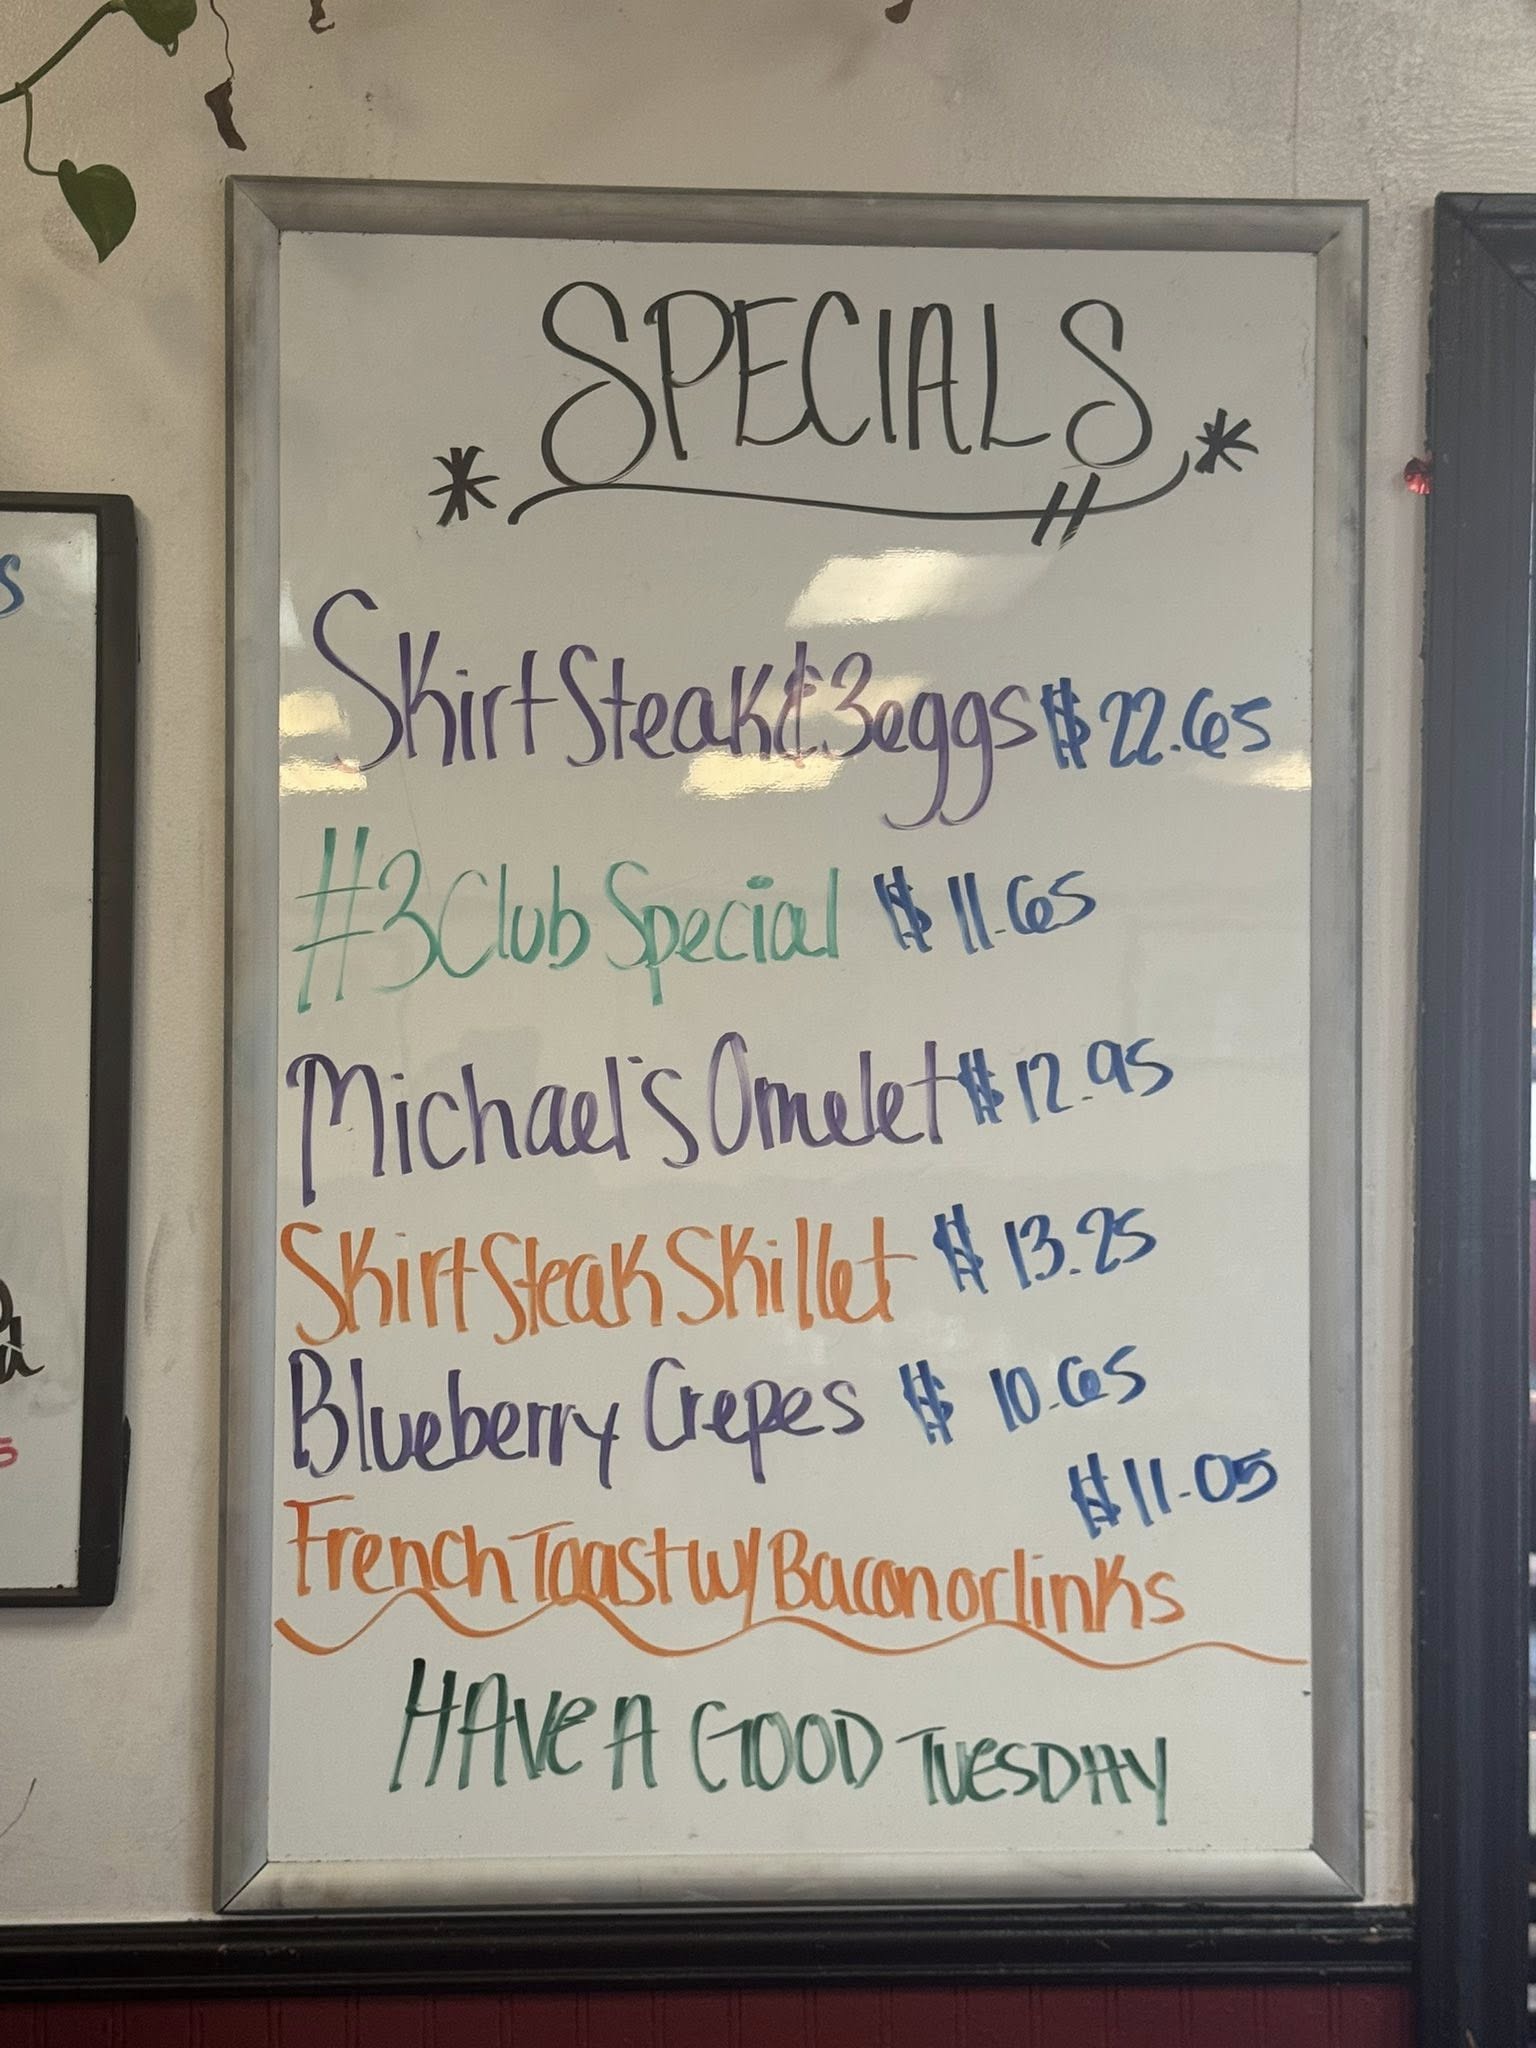 SPECIALS
Skirt Steak & 3 eggs $22.65
#3 Club Special $11.65
Michael's Omelet $12.95
Skirt Steak Skillet $13.25
Blueberry Crepes $10.65
$11.05
French Toast w/ Bacon or links
HAVE A GOOD TUESDAY